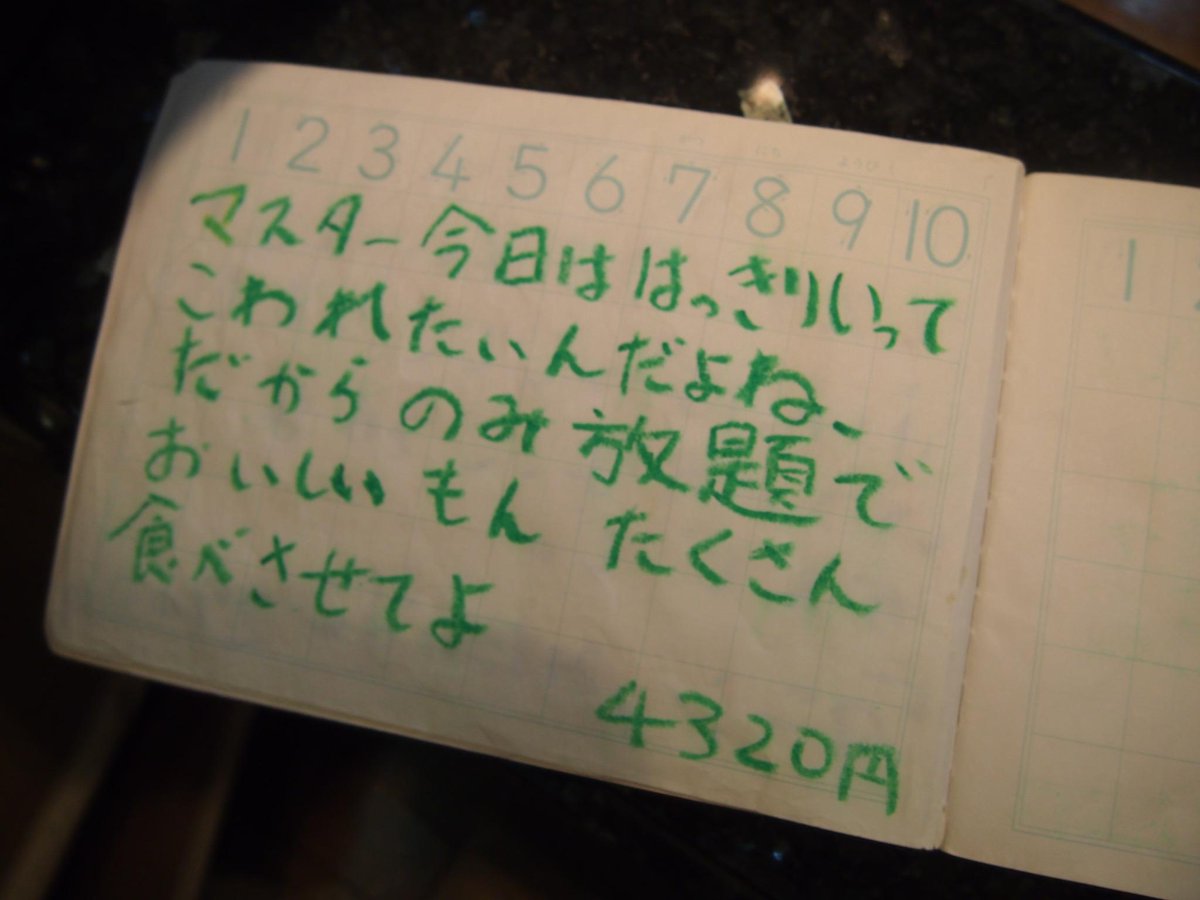 1 2 3 4 5 6 7 8 9 10
マスター今日ははっきりいって
こわれたいんだよね、
だからのみ放題で
おいしいもんたくさん
食べさせてよ
4320円
1